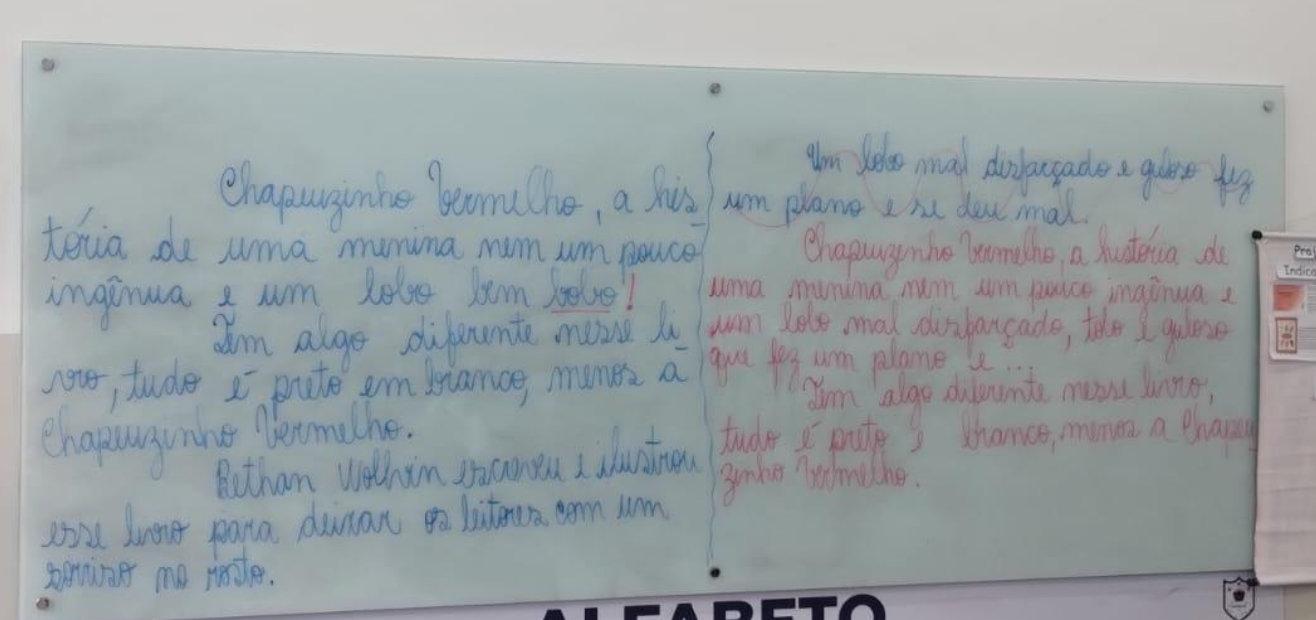 Chapeuzinho Vermelho, a his
tória de uma menina nem um pouco
ingênua e um lobo bem bobo!
Tem algo diferente nesse li
vro, tudo é preto em branco, menos a
Chapeuzinho Vermelho.
Bethan Wolhvin escreveu e ilustrou
esse livro para deixar os leitores com um
sorriso no rosto.
Um lobo mal disfarçado e guloso fez
um plano e se deu mal.
Chapeuzinho Vermelho, a história de
uma menina nem um pouco ingênua e
um lobo mal disfarçado, tolo e guloso
que fez um plano e...
Tem algo diferente nesse livro,
tudo é preto e branco, menos a Chapeu
zinho Vermelho.
ALFABETO